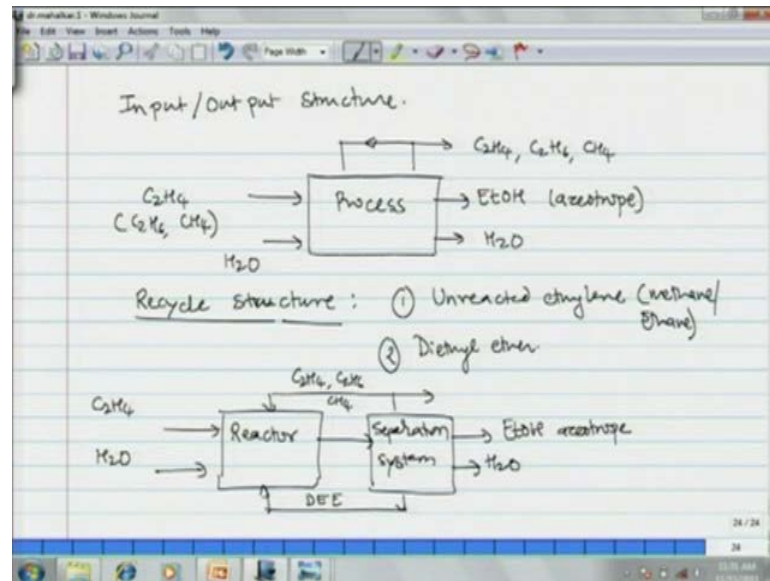 dr.mahalkar.1 - Windows Journal
File Edit View Insert Actions Tools Help
Page Width
Input/Output Structure.
C2H4, C2H6, CH4
C2H4
(C2H6, CH4)
Process
EtOH (azeotrope)
H2O
H2O
Recycle Structure : ① Unreacted ethylene (methane/
Ethane)
② Diethyl ether.
C2H4, C2H6
CH4
C2H4
Reactor
Separation
System
EtOH azeotrope
H2O
H2O
DEE
24 / 24
24